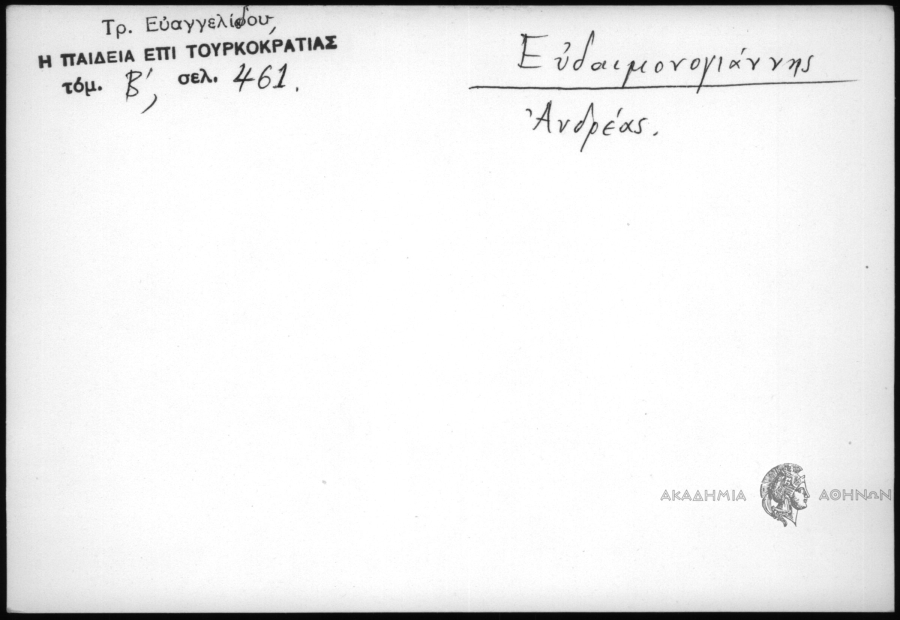 Τρ. Εὐαγγελίδου,
Η ΠΑΙΔΕΙΑ ΕΠΙ ΤΟΥΡΚΟΚΡΑΤΙΑΣ
τόμ. Β΄, σελ. 461.
Εὐδαιμονογιάννης
Ἀνδρέας.
ΑΚΑΔΗΜΙΑ ΑΘΗΝΩΝ